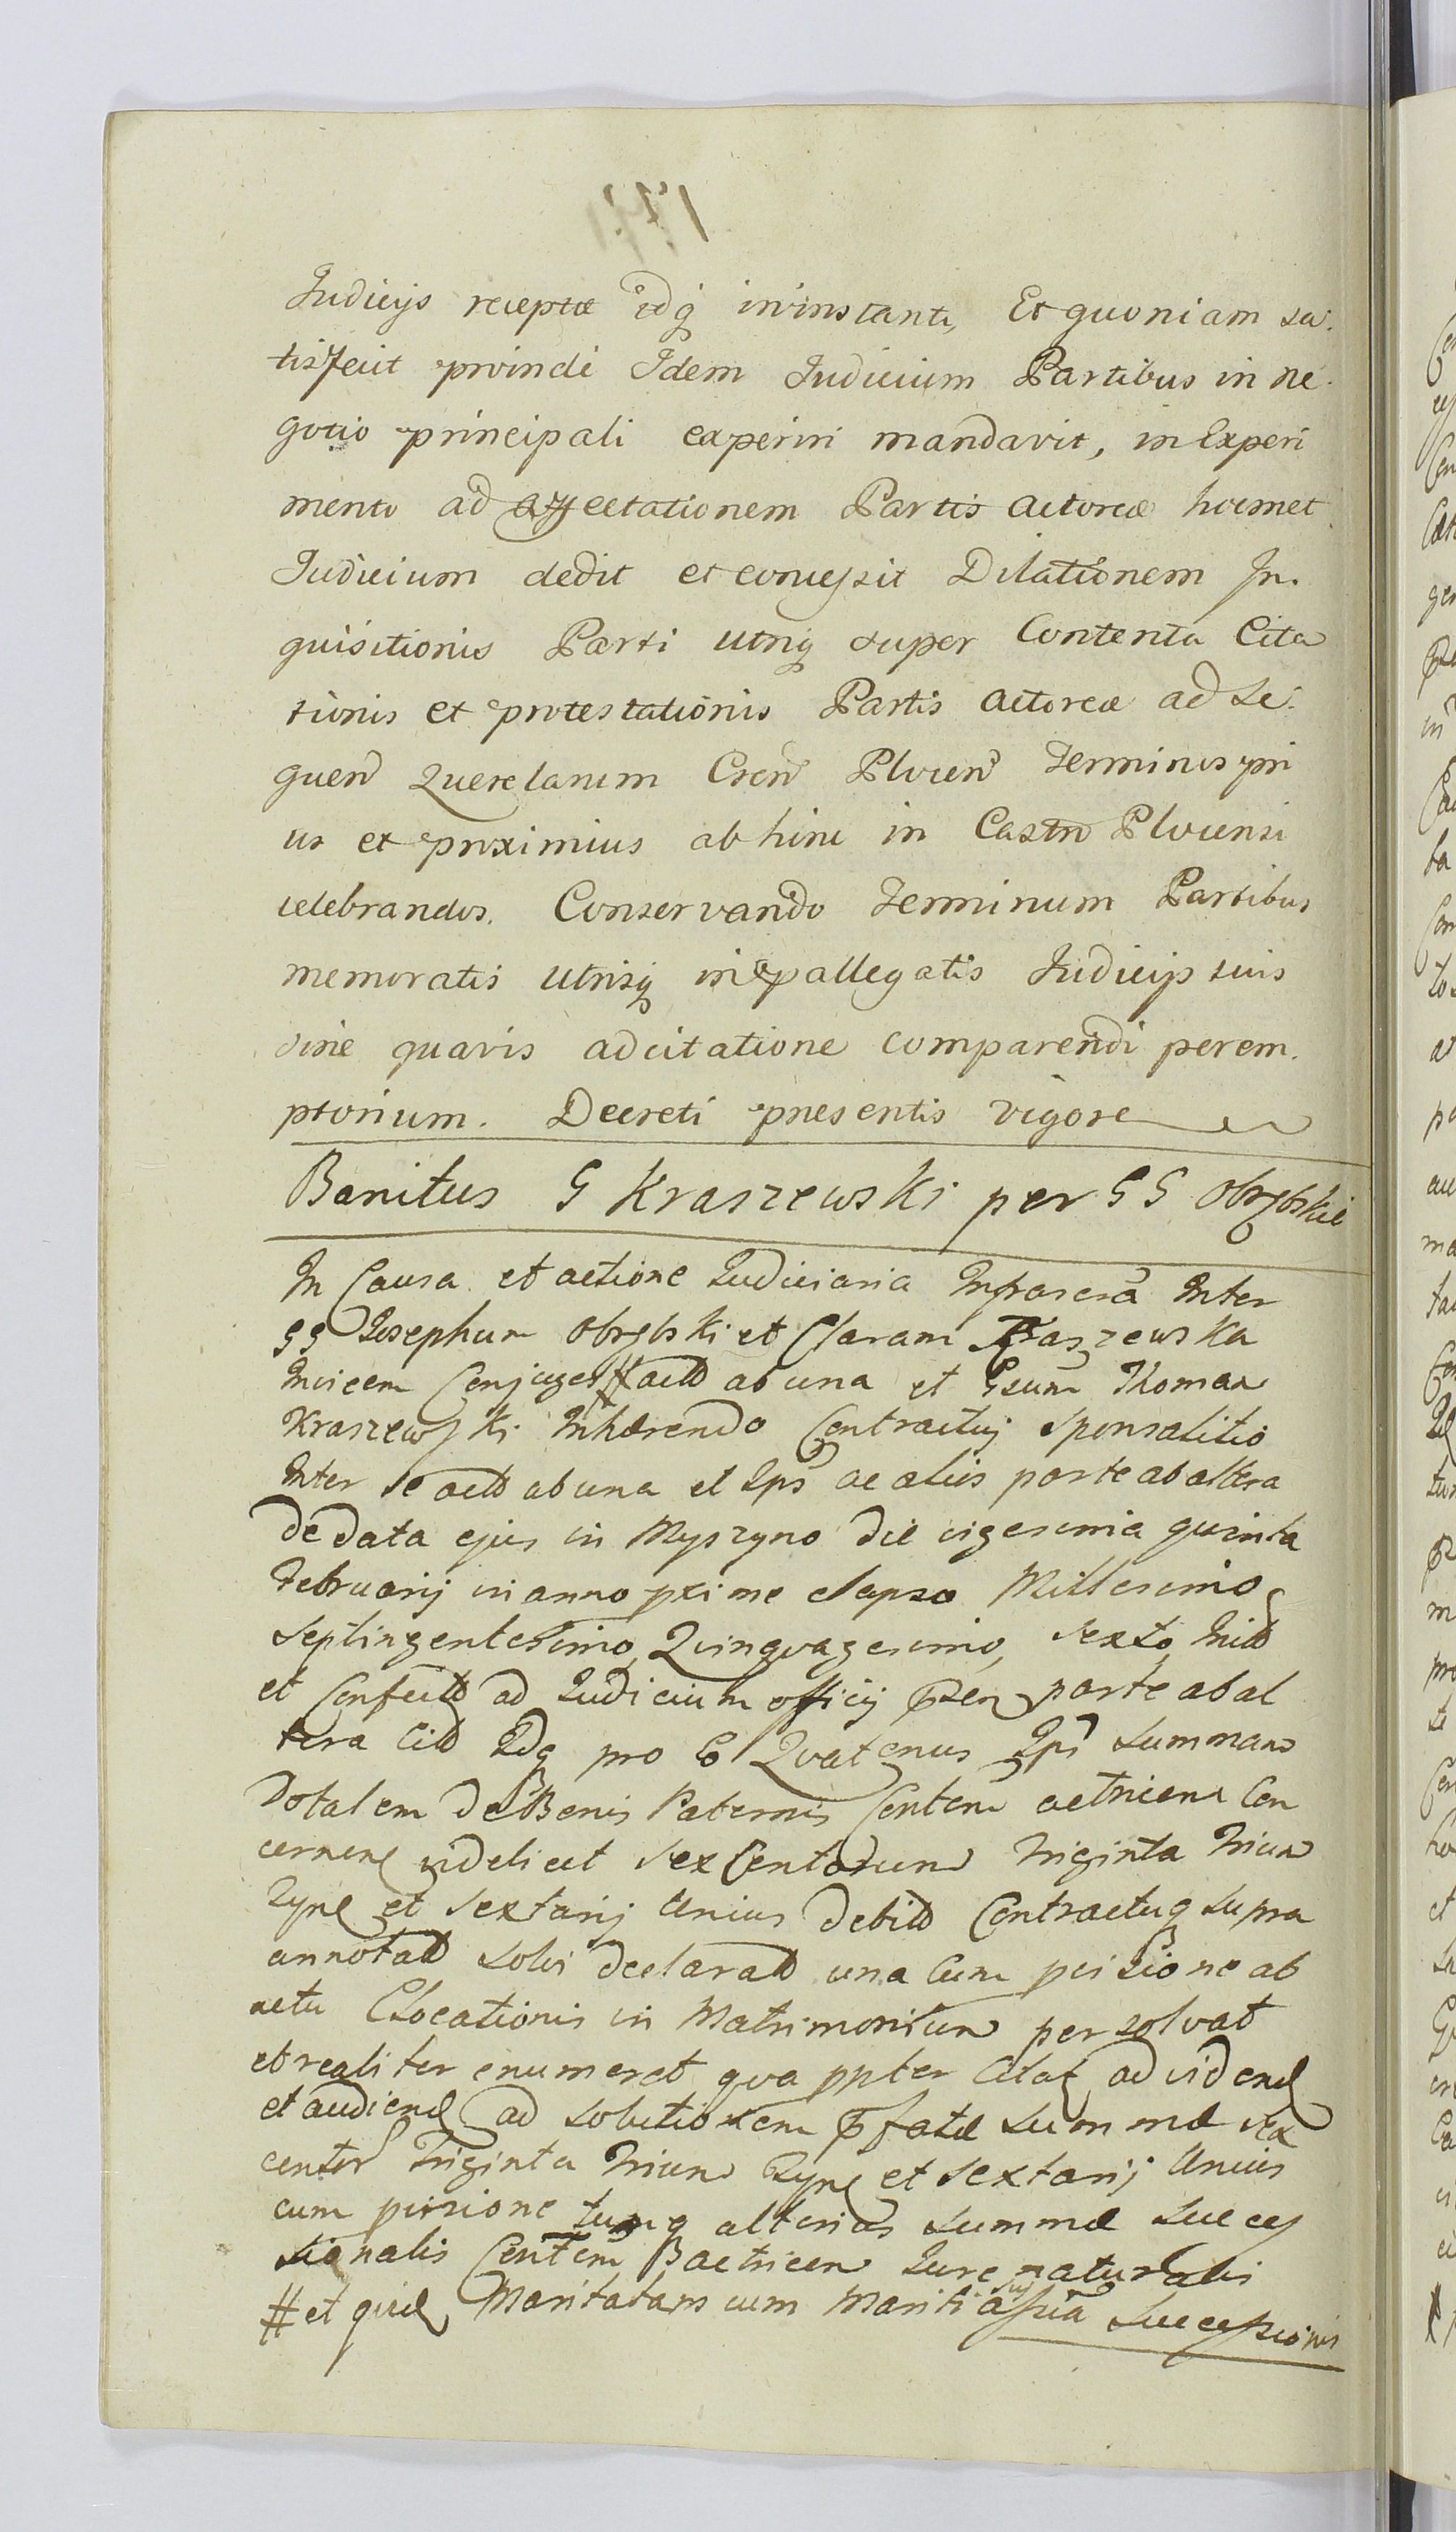 Judicijs receptæ idq̃ in instanti, Et quoniam sa-
tisfecit proinde Idem Judicium Partibus in ne-
gotio principali experiri mandavit, in Experi
mento ad affectationem Partis actoreæ hocmet
Judicium dedit et concessit Dilationem In-
quisitionis Parti utriq̃ super Contenta Cita
tionis et protestationis Partis actoreæ ad Se-
quen Querelarum Cren Plocen Terminos pri
us et proximius ab hinc in Castro Plocensi
celebrandos. Conservando Terminum Partibus
memoratis utrisq̃ in allegatis Judicijs suis
sine quavis adcitatione comparendi perem-
ptorium. Decreti presentis vigore
Banitus G Kraszewski per GG Obrębskie
In Causa et actione Judiciaria Infrascra Inter
GG Josephum Obrębski et Claram Kraszewska
Invicem Conjuges # act ab una et Gsum Thomam
Kraszewski Inhærendo Contractuj Sponsalitio
Inter se act ab una et Ips ac aliis parte ab altera
de data ejus in Myszyno die vigesima quinta
Februarij in anno pxime elapso Millesimo
Septingentesimo Quinquagesimo, Sexto Init
et Confect ad Judicium officij Psen parte ab al
tera Cit Idq pro Eo Quatenus Ips Summam
Dotalem de Bonis Paternis Conten actricem Con
cernen videlicet Sex Centorum Triginta Trium
Tyn et Sextarij Unius debit Contractuq Supra
annotat Solvi declarat una Cum provisione ab
actu Elocationis in Matrimonium persolvat
et realiter enumeret qva ppter Citat ad viden
et audien ad Solutionem Pfatæ Summæ Sex
centor Triginta Trium Tyn et Sextarij Unius
cum provisione tumq alterius Summæ Succes
sionalis Conten actricem Jure naturali
# et quid Maritatam cum Mariti suj assia Successionis